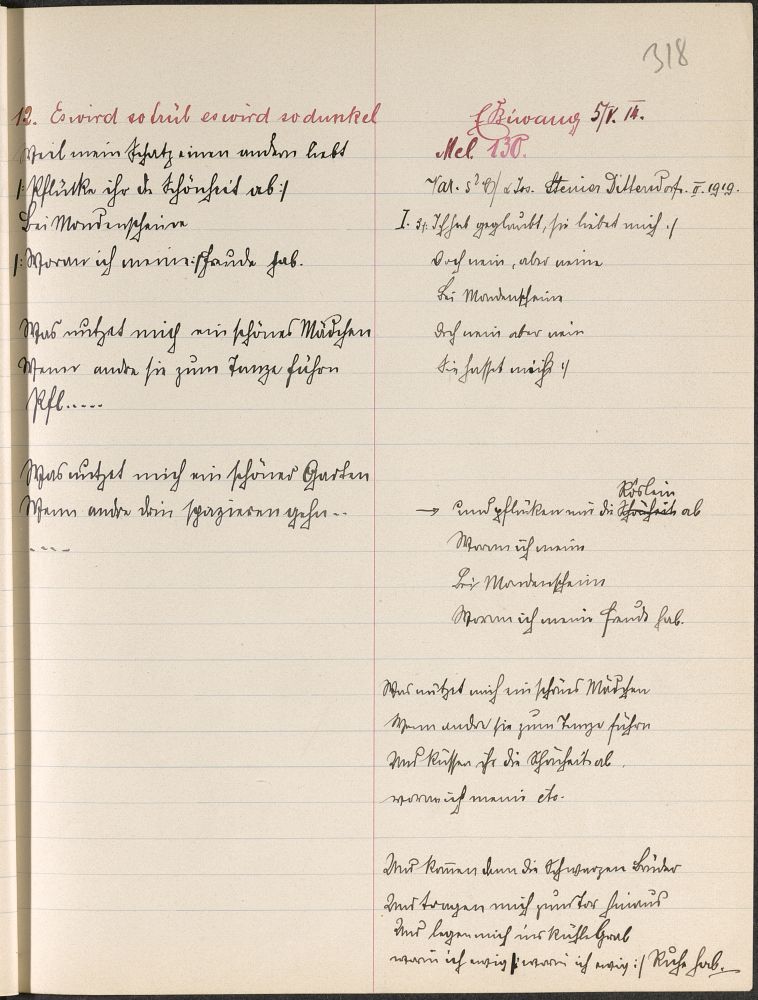 318
12. Es wird so trüb es wird so dunkel
Weil mein Schatz einen andern liebt
/: Pflückt ihr die Schönheit ab :/
Bei Mondenscheine
/: Woran ich meine :/ Freude hab.
Was nutzet mich ein schönes Mädchen
Wenn andre sie zum Tanze führn
Pfl.....
Was nutzet mich ein schöner Garten
Wenn andre drin spazieren gehn--
----
5/V. 14.
Mel. 130.
Var. Jos. Steiner II. 1919.
I. Ich hab geglaubt, sie liebet mich :/
Doch nein, aber neine
Bei Mondenscheine
Doch nein aber nein
Sie hasset mich :/
Röslein
→ und pflücken mir die Schönheit ab
Woran ich meine
Bei Mondenschein
Woran ich meine Freude hab.
Was nützet mich ein schönes Mädchen
Wenn andre sie zum Tanze führn
Und küssen ihr die Schönheit ab.
woran ich meine etc.
Und kom̅en dann die schwarzen Brüder
Und tragen mich zum Tor hinaus
Und legen mich ins kühle Grab
worin ich ewig /: worin ich ewig :/ Ruhe hab.